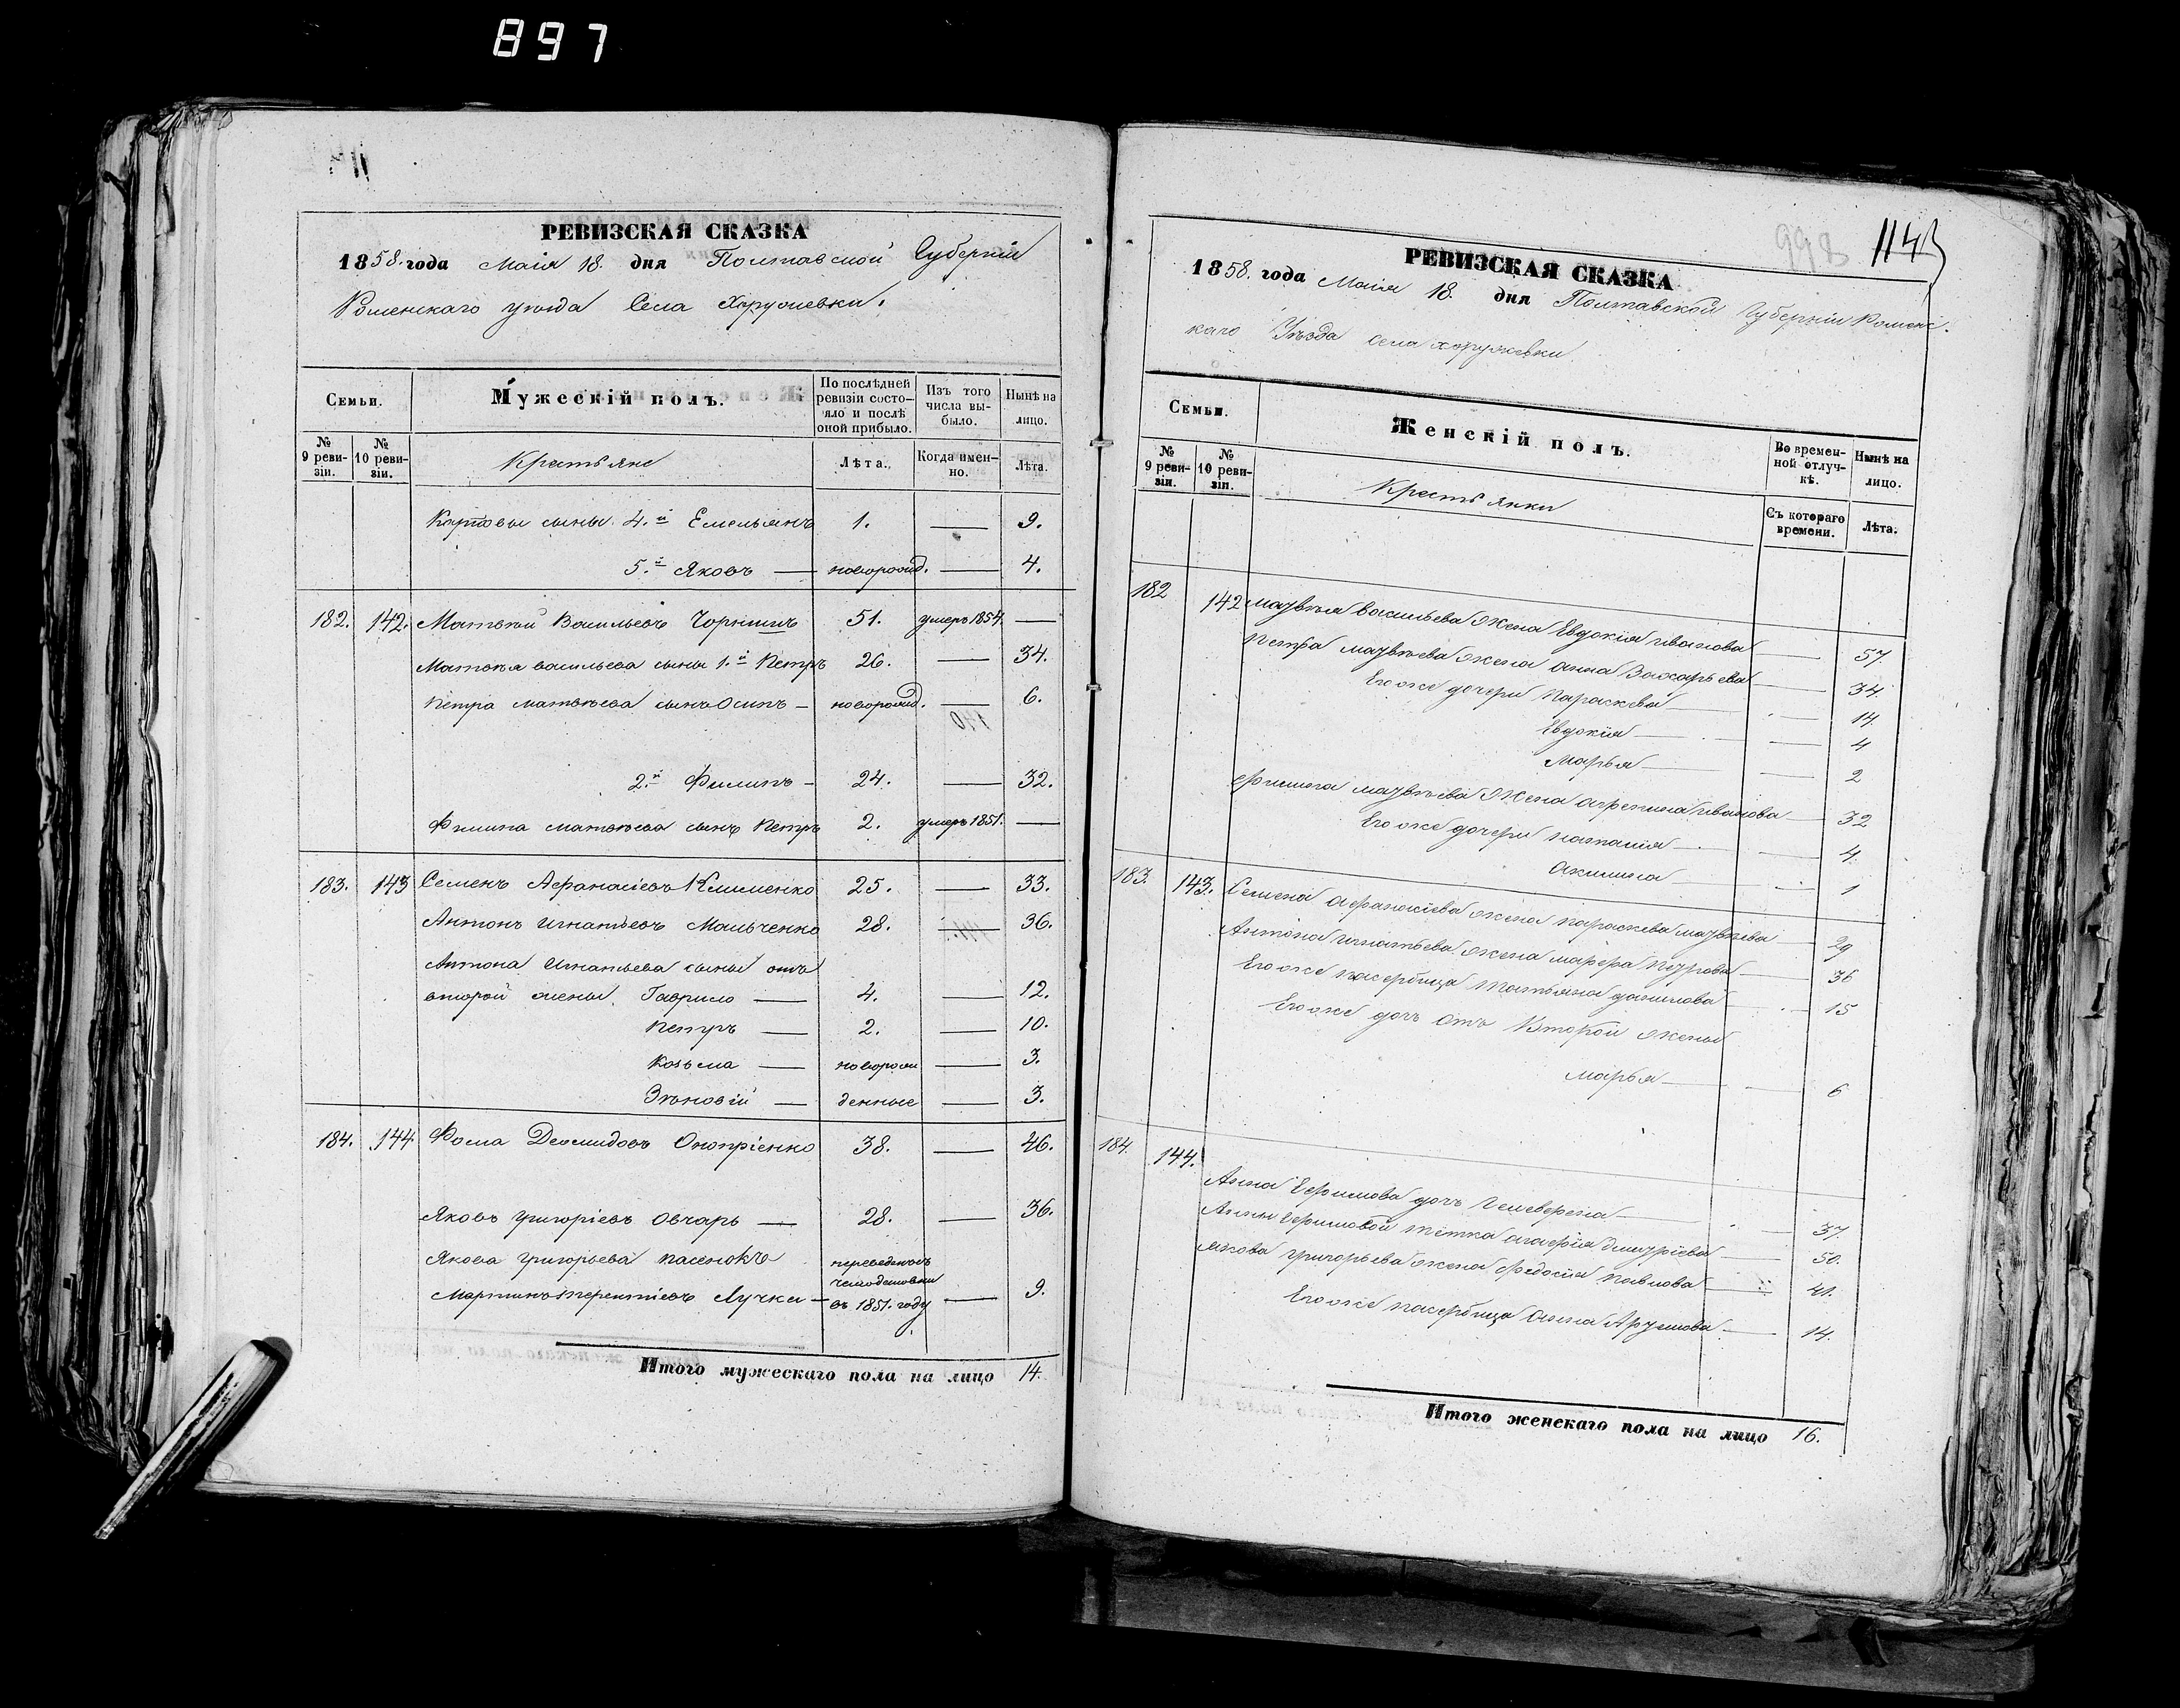 897
РЕВИЗСКАЯ СКАЗКА
1858. года Маія 18. дня Полтавской Губерніи
Роменскаго уезда Села Хоружевки.
Семьи.
Мужескій полъ.
По послѣдней ревизіи состояло и послѣ оной прибыло.
Изъ того числа выбыло.
Нынѣ на лицо.
№ 9 ревизіи.
№ 10 ревизіи.
Крестьяне
Лѣта.
Когда именно.
Лѣта.
сыны 4.й Емельянъ 1. — 9.
5.й Яковъ — новорожд. — 4.
182. 142. Матвѣй Васильевъ 51. умеръ 1854. —
Матвѣя Васильева сыны 1.й Петръ 26. — 34.
Петра Матвѣева сынъ Осипъ — новорожд. — 6.
2.й Филипъ — 24. — 32.
Филипа Матвѣева сынъ Петръ 2. умеръ 1851. —
183. 143 Семенъ Афанасіевъ Клименко 25. — 33.
Антонъ Игнатьевъ Мальченко 28. — 36.
Антона Игнатьева сыны отъ
второй жены. Гаврило — 4. — 12.
Петръ — 2. — 10.
Козьма — новорож — 3.
Зѣновій — денные — 3.
184. 144 Фома Демидовъ Онопріенко 38. — 46.
Яковъ Григоріевъ Овчарь — 28. — 36.
Якова Григорьева пасенокъ переведенъ
Мартинъ Терентіевъ Лучка — въ 1851. году — 9.
Итого мужескаго пола на лицо 14.
998 1143
РЕВИЗСКАЯ СКАЗКА
1858. года Маія 18. дня Полтавской Губерніи Роменс-
каго Уѣзда села Хоружевки.
Семьи.
Женскій полъ.
Во временной отлучкѣ.
Нынѣ на лицо.
№ 9 ревизіи.
№ 10 ревизіи.
Крестьянки
Съ котораго времени.
Лѣта.
182 142 Матвѣя Васильева жена Евдокія Иванова — 57.
Петра Матвѣева жена Анна Захарьева — 34
Его же дочери Параскева — 14.
Евдокія — 4
Марья — 2
Филипа Матвѣева жена Агрепина Иванова — 32
Его же дочери Наталія — 4.
Акилина — 1
183. 143. Семена Афанасіева жена Параскева Матвѣева 29
Антона Игнатьева жена Марфа Петрова — 36
Его же пасербица Татьяна Данилова — 15
Его же дочь отъ Второй жены
Марья — 6
184. 144. Анна Ефимова дочь — 37.
Анны Ефимовой тетка Агафія Дмитріева — 50.
Якова Григорьева жена Федосія Павлова — 41.
Его же пасербица Анна — 14.
Итого женскаго пола на лицо 16.